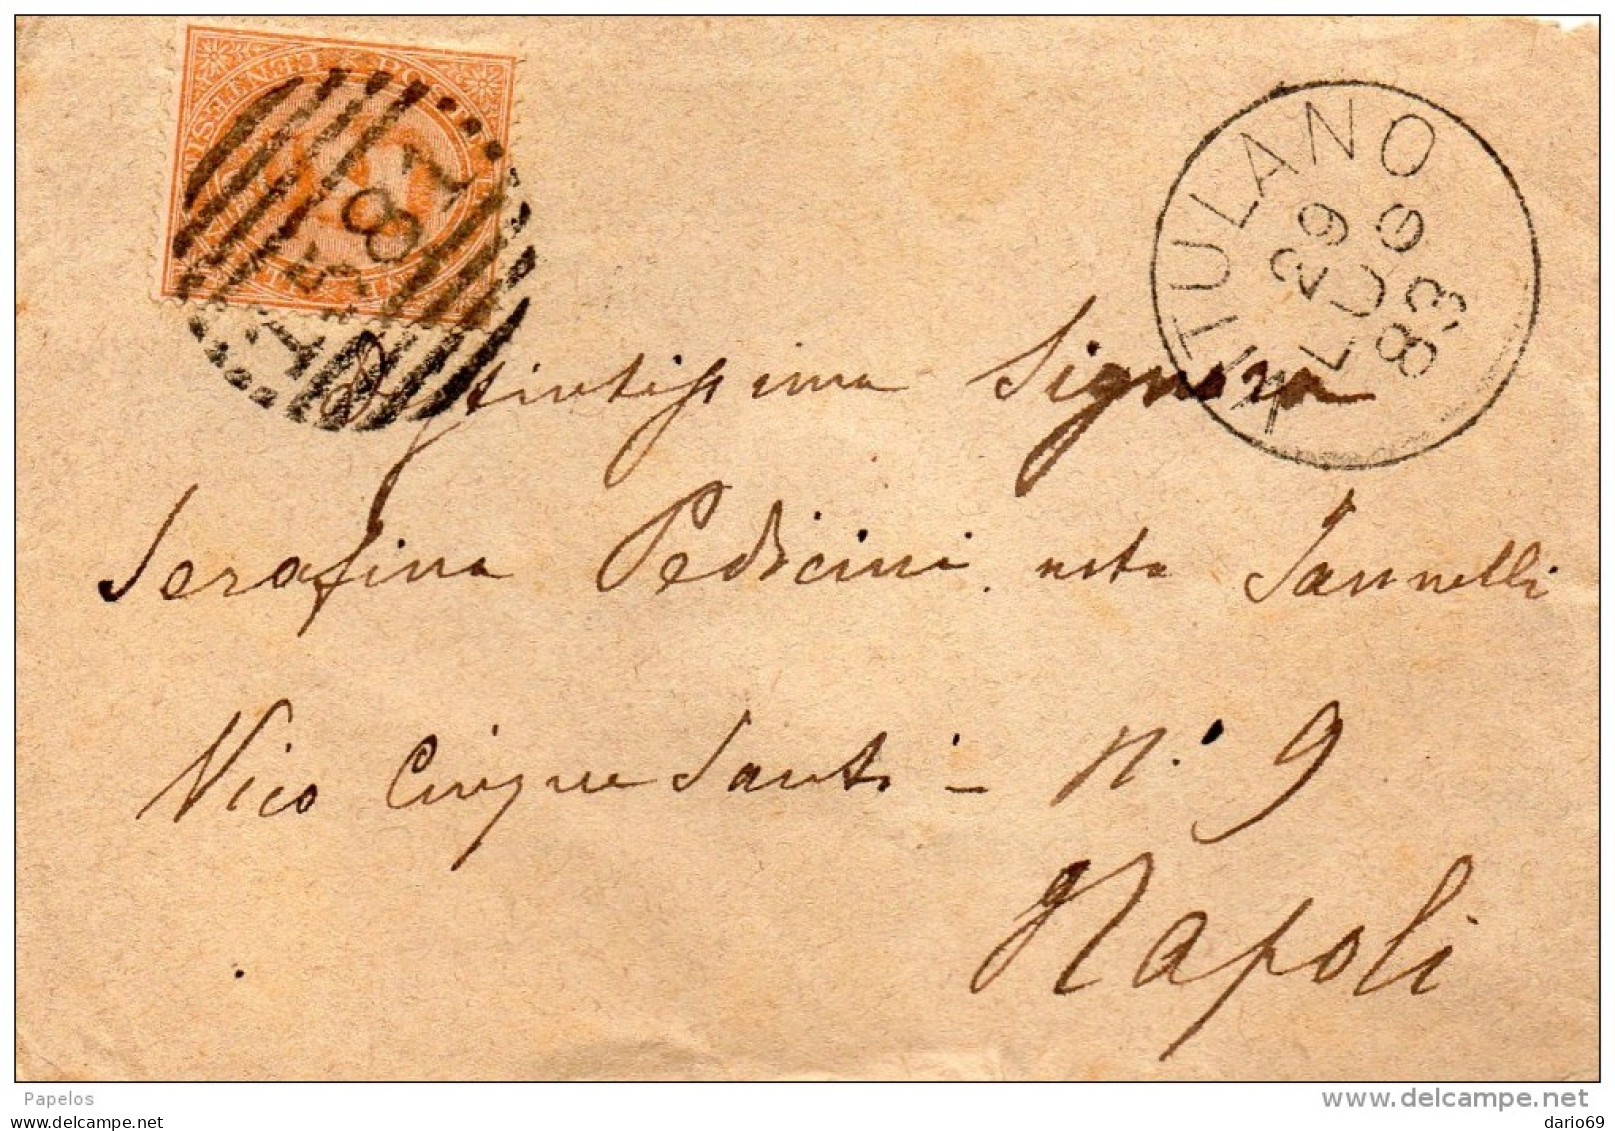 VITULANO
29
LUG
83
Distintissima Signora
Serafina Pedicini nata Iannelli
Vico Cinque Santi - N. 9
Napoli
Papelos
www.delcampe.net
dario69